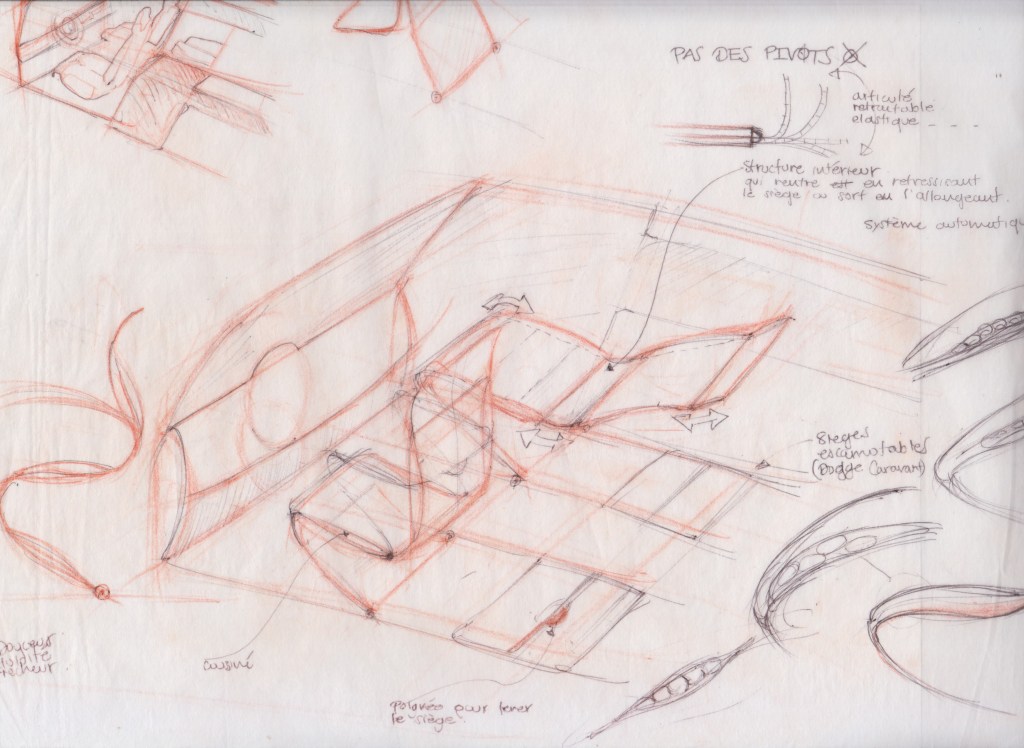 PAS DES PIVOTS
articulé
retractable
elastique _ _ _ .
structure intérieur
qui rentre en retressicant
le siège ou sort en l'allongeant.
système automatiq
Sieges
escamotables
(Dodge Caravan)
cousiné
pour tener
le siège.